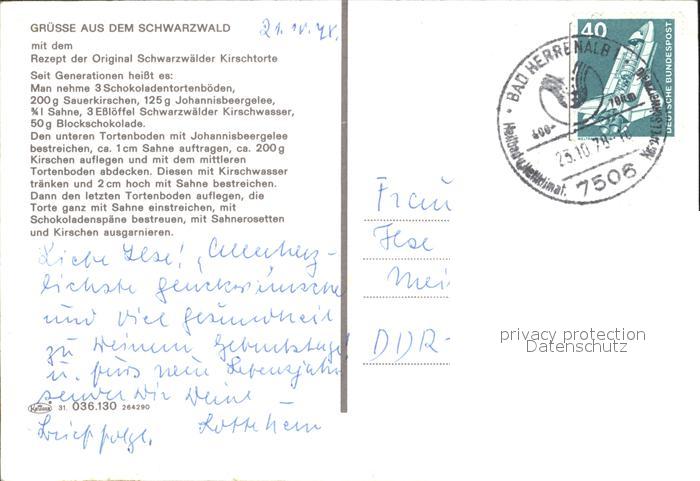 GRÜSSE AUS DEM SCHWARZWALD
21.10.78.
mit dem
Rezept der Original Schwarzwälder Kirschtorte
Seit Generationen heißt es:
Man nehme 3 Schokoladentortenböden,
200 g Sauerkirschen, 125 g Johannisbeergelee,
¾ l Sahne, 3 Eßlöffel Schwarzwälder Kirschwasser,
50 g Blockschokolade.
Den unteren Tortenboden mit Johannisbeergelee
bestreichen, ca. 1 cm Sahne auftragen, ca. 200 g
Kirschen auflegen und mit dem mittleren
Tortenboden abdecken. Diesen mit Kirschwasser
tränken und 2 cm hoch mit Sahne bestreichen.
Dann den letzten Tortenboden auflegen, die
Torte ganz mit Sahne einstreichen, mit
Schokoladenspäne bestreuen, mit Sahnerosetten
und Kirschen ausgarnieren.
Liebe Ilse! Allerherz-
lichste Glückwünsche
und viel Gesundheit
zu Deinem Geburtstage!
u. fürs neue Lebensjahr
senden wir Deine –
Brief folgt.
31. 036.130 264290
40
DEUTSCHE BUNDESPOST
BAD HERRENALB
400-
700m
23.10.78
7506
Frau
Ilse
Mei
DDR-
privacy protection
Datenschutz